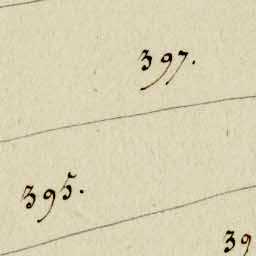 397.
395.
39